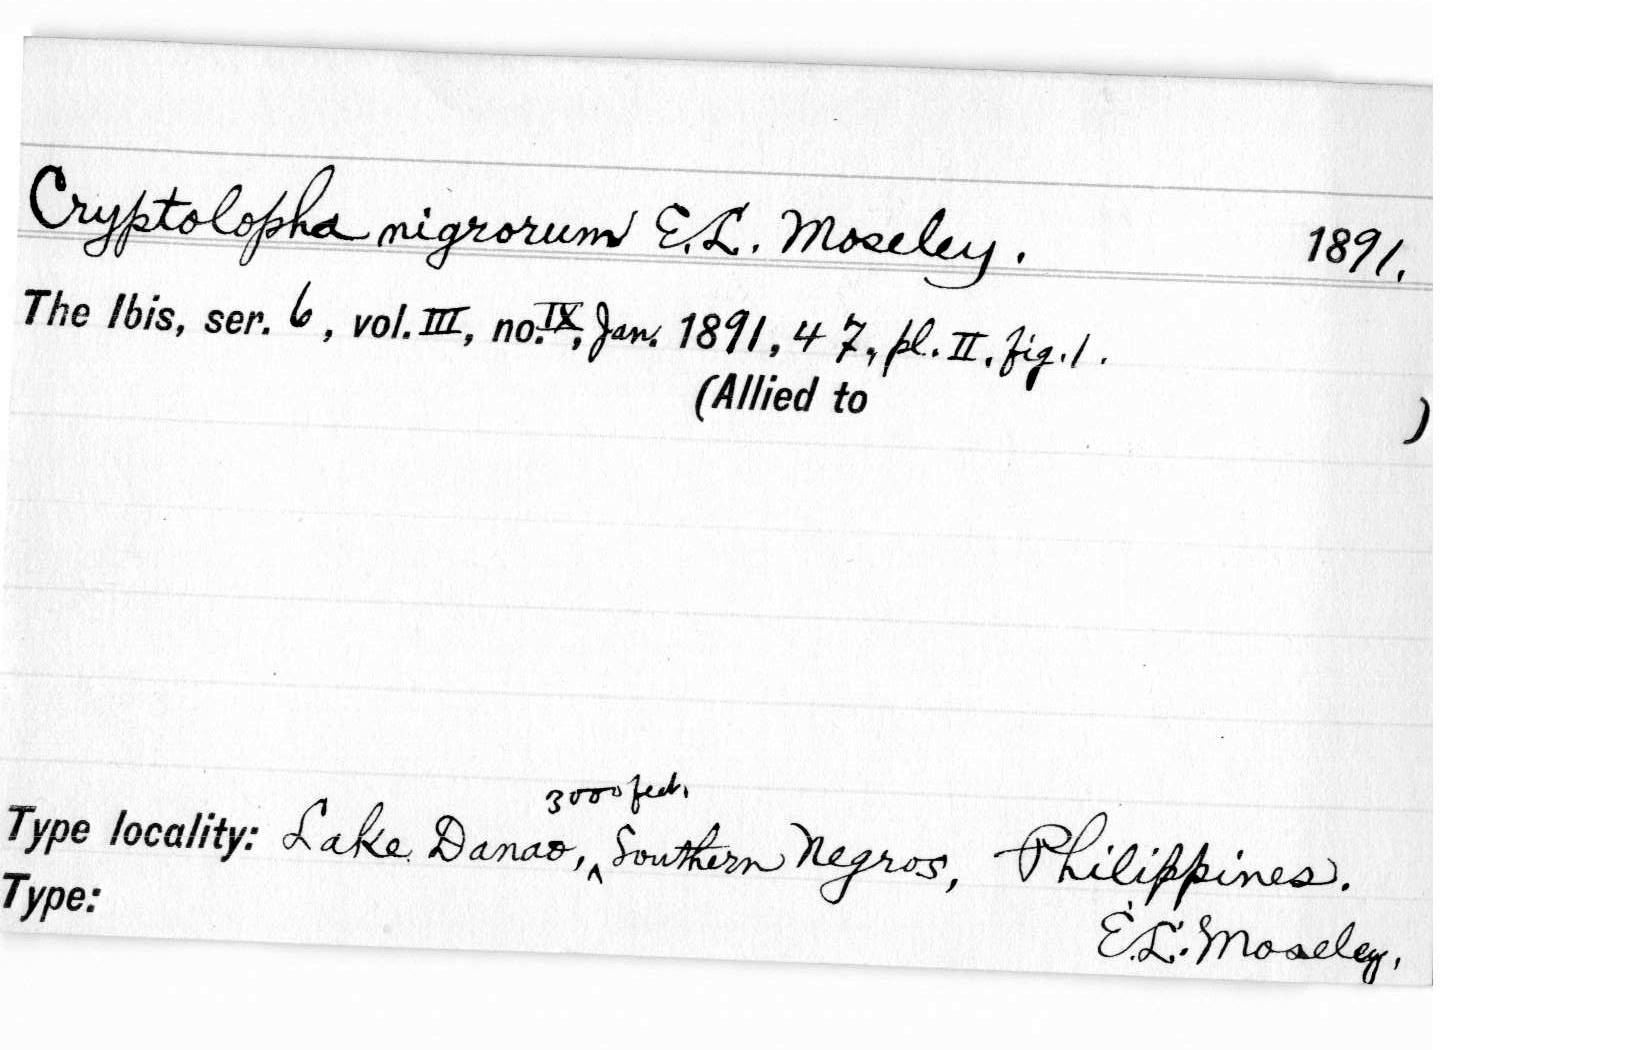 Cryptolopha nigrorum E.L. Moseley. 1891.
The Ibis, ser. 6, vol. III, no. IX, Jan. 1891, 47, pl. II. fig. 1.
(Allied to )
3000 feet.
Type locality: Lake Danao, ^ Southern Negros, Philippines.
Type:
E.L. Moseley.